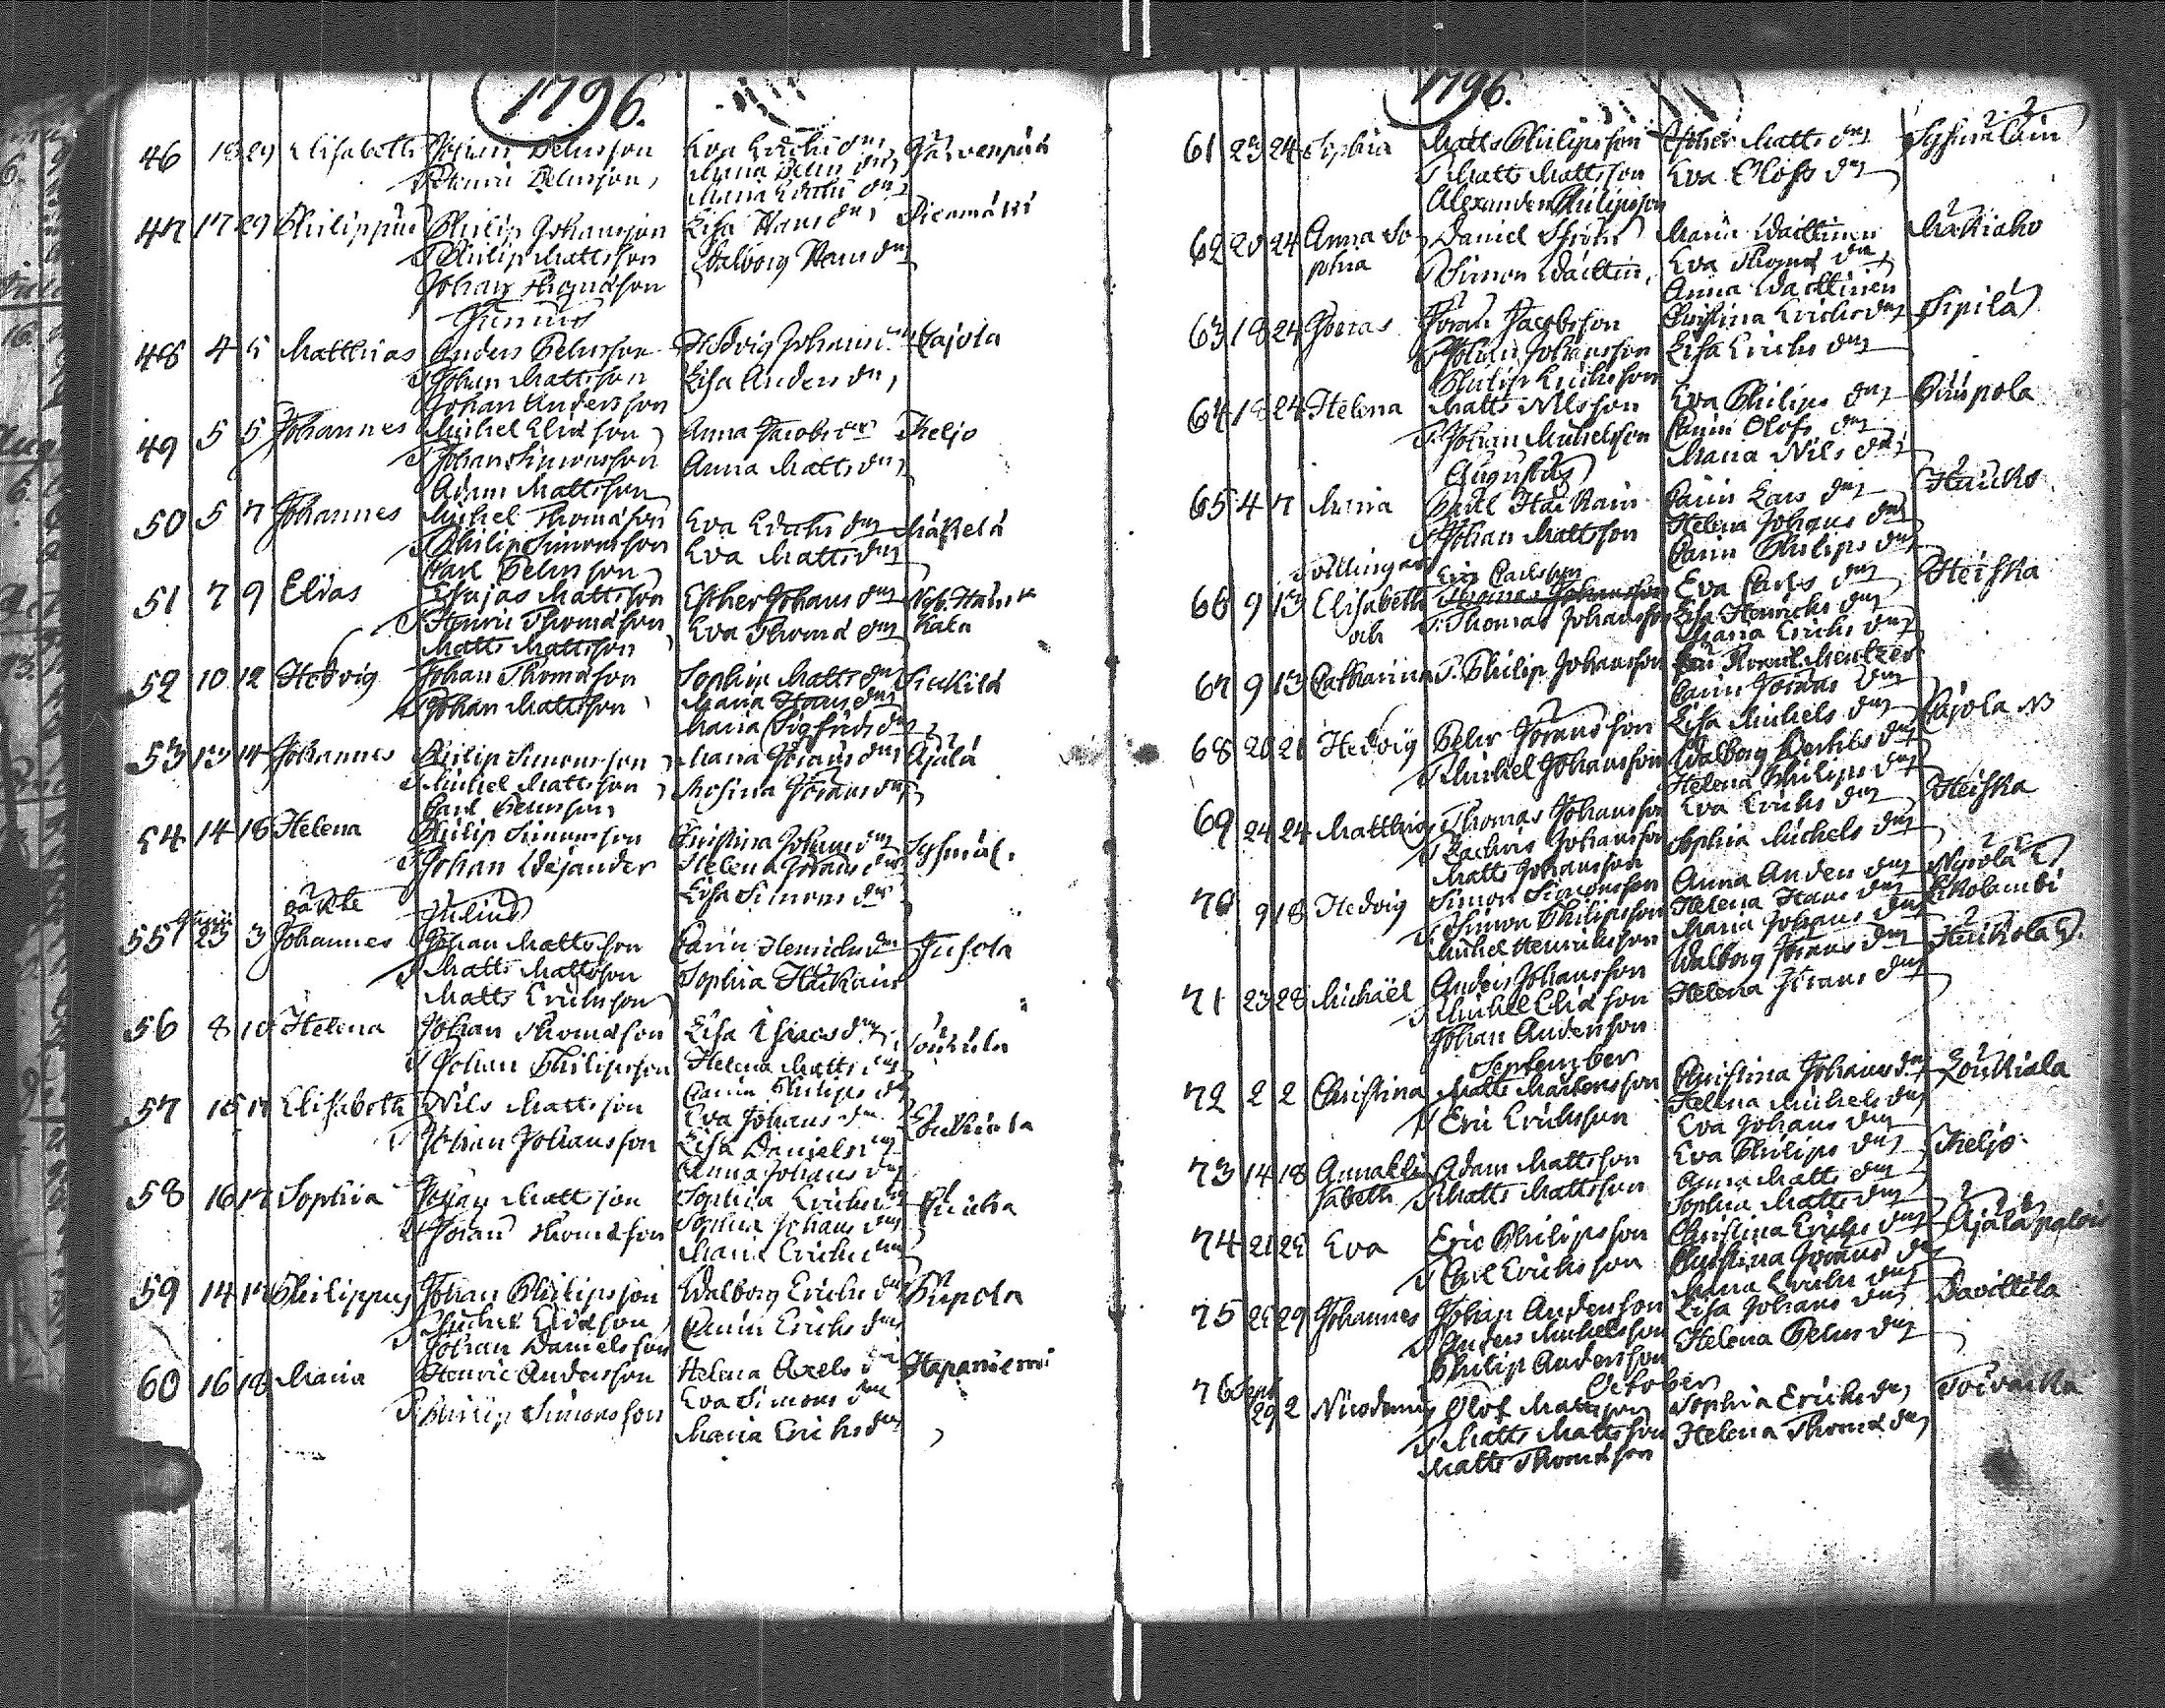 1796.
46 19 29 Elisabeth Johan Pehrsson Eva Erichs dr Järvenpää
T Henric Pehrsson, Maria Pehrs dr
Maria Erichs dr
47 17 29 Philippus Philip Johansson Lisa Hans dr
T Philip Mattsson Walborg Hans dr
Johan Thomasson
Junius
48 4 5 Matthias Anders Pehrsson Hedvig Johans dr Cajola
T Johan Mattsson Lisa Anders dr
Johan Andersson
49 5 5 Johannes Michel Eliasson Anna Jacobs dr Keljo
T Johan Simonsson Anna Matts dr
Adam Mattsson
50 5 7 Johannes Michel Thomasson Eva Erichs dr Mäkelä
T Philip Simonsson Eva Matts dr
Carl Pehrsson
51 7 9 Elias Esajas Mattsson Esther Johans dr
T Henric Thomasson Eva Thomas dr
Matts Mattsson
52 10 12 Hedvig Johan Thomasson Sophia Matts dr
T Johan Mattsson Maria Hans dr
Maria Sigfrids dr
53 13 14 Johannes Philip Simonsson Maria Jörans dr Ajala
T Michel Mattsson Rosina Jörans dr
Carl Pehrsson
54 14 16 Helena Philip Simonsson Christina Johans dr
T Johan Wejander Helena Jörans dr
Lisa Simons dr
oäkte Julius
55 Junii 25 3 Johannes Johan Mattsson Carin Henrichs dr Jusola
T Matts Mattsson Sophia Häckain
Matts Erichsson
56 8 10 Helena Johan Thomasson Lisa Isaacs dr
T Johan Philipsson Helena Matts dr
Carin Philips dr
57 15 17 Elisabeth Nils Mattsson Eva Johans dr Löukiala
T Johan Johansson Lisa Daniels dr
Anna Johans dr
58 16 17 Sophia Johan Mattsson Sophia Erichs dr
T Jöran Thomasson Sophia Johans dr
Maria Erichs dr
59 14 17 Philippus Johan Philipsson Walborg Erichs dr Pupola
T Michel Eliasson Carin Erichs dr
Johan Danielsson
60 16 18 Maria Henric Andersson Helena Axels dr Hapaniemi
T Philip Simonsson Eva Simons dr
Maria Erichs dr
1796.
61 23 24 Sophia Matts Philipsson Esther Matts dr
T Matts Mattsson Eva Olofs dr
Alexander Philipsson
62 20 24 Anna So Daniel Ström Maria Wäctinen Mäkiaho
phia T Simon Wäcttin Eva Thomas dr
Anna Wäctinen
63 18 24 Jöeras Jöran Jacobsson Christina Erichs dr Sipilä
T Johan Johansson Lisa Erichs dr
Philip Erichsson
64 18 24 Helena Matts Nilsson Eva Philips dr Pupola
T Johan Michelsson Carin Olofs dr
Augustus Maria Nils dr
65 4 7 Maria Carl Häckain Carin Lars dr
T Johan Mattsson Helena Johans dr
Carin Philips dr
Tvillingar Eric Carlsson
66 9 13 Elisabeth Thomas Johansson Eva Carls dr Heiska
och T. Thomas Johansson Lisa Henrichs dr
Maria Erichs dr
67 9 13 Catharina T. Philip Johansson
Carin Jörans dr
68 20 21 Hedvig Pehr Jöransson Lisa Michels dr Cajola N
T Michel Johansson Walborg
Helena Philips dr
69 24 24 Matthias Thomas Johansson Eva Erichs dr Heiska
T Zachris Johansson Sophia Michels dr
Matts Johansson
70 9 18 Hedvig Simon Simonsson Anna Anders dr
T Simon Philipsson Helena Hans dr
Michel Henricsson Maria Johans dr
71 23 28 Michaël Anders Johansson Walborg Jörans dr
T Michel Eliasson Helena Jörans dr
Johan Andersson
September
72 2 2 Christina Matts Mårtensson Christina Johans dr Löukiala
T Eric Erichsson Helena Michels dr
Eva Johans dr
73 14 18 Anna Eli Adam Mattsson Eva Philips dr Keljo
sabeth T Matts Mattsson Anna Matts dr
Sophia Matts dr
74 21 25 Eva Eric Philipsson Christina Erichs dr
T Carl Erichsson Christina Jörans dr
Maria Erichs dr
75 25 29 Johannes Johan Andersson Lisa Johans dr Pavittila
T Anders Michelsson Helena Pehrs dr
Philip Andersson
October
76 Sept 29 2 Nicodemus Olof Mattsson Sophia Erichs dr Toivakka
T Matts Mattsson Helena Thomas dr
Matts Thomasson